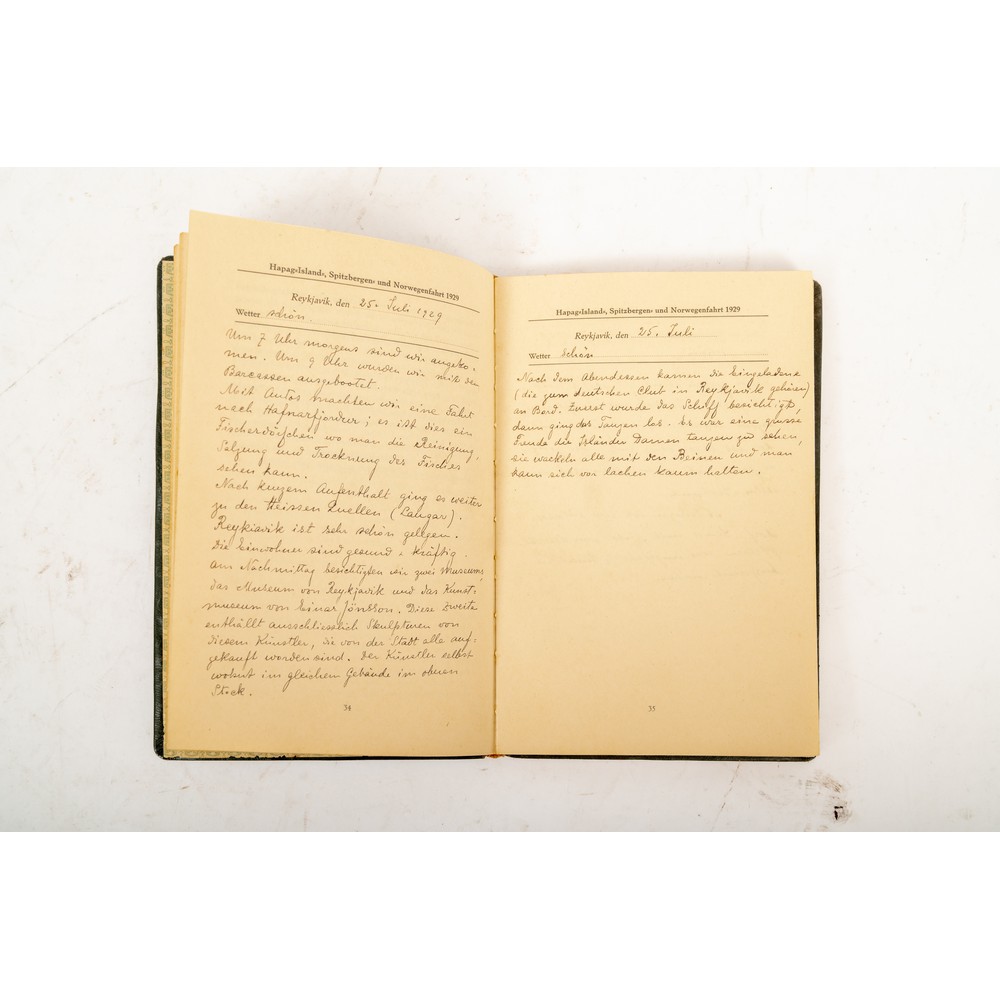 Hapag-Island-, Spitzbergen- und Norwegenfahrt 1929
Reykjavik, den 25. Juli 1929
Wetter schön.
Um 7 Uhr morgens sind wir angeko-
men. Um 9 Uhr wurden wir mit den
Barcassen ausgebootet.
Mit Autos machten wir eine Fahrt
nach Hafnarfjördur; es ist dies ein
Fischerdörfchen wo man die Reinigung,
Salzung und Trocknung des Fisches
sehen kann.
Nach kurzem Aufenthalt ging es weiter
zu den Heissen Quellen (Laugar).
Reykiavik ist sehr schön gelegen.
Die Einwohner sind gesund u kräftig.
Am Nachmittag besichtigten wir zwei Museums,
das Museum von Reykjavik und das Kunst-
museum von Einar Jónsson. Diese zweite
enthällt ausschliesslich Skulpturen von
diesem Künstler, die von der Stadt alle auf-
gekauft worden sind. Der Künstler selbst
wohnt im gleichen Gebäude im oberen
Stock.
34
Hapag-Island-, Spitzbergen- und Norwegenfahrt 1929
Reykjavik, den 25. Juli
Wetter schön
Nach dem Abendessen kamen die Eingeladene
(die zum deutschen Club in Reykjavik gehören)
an Bord. Zuerst wurde das Schiff besichtigt,
dann ging das Tanzen los. Es war eine grosse
Freude die Isländer Damen tanzen zu sehen,
sie wackeln alle mit den Beinen und man
kann sich vor lachen kaum halten.
35